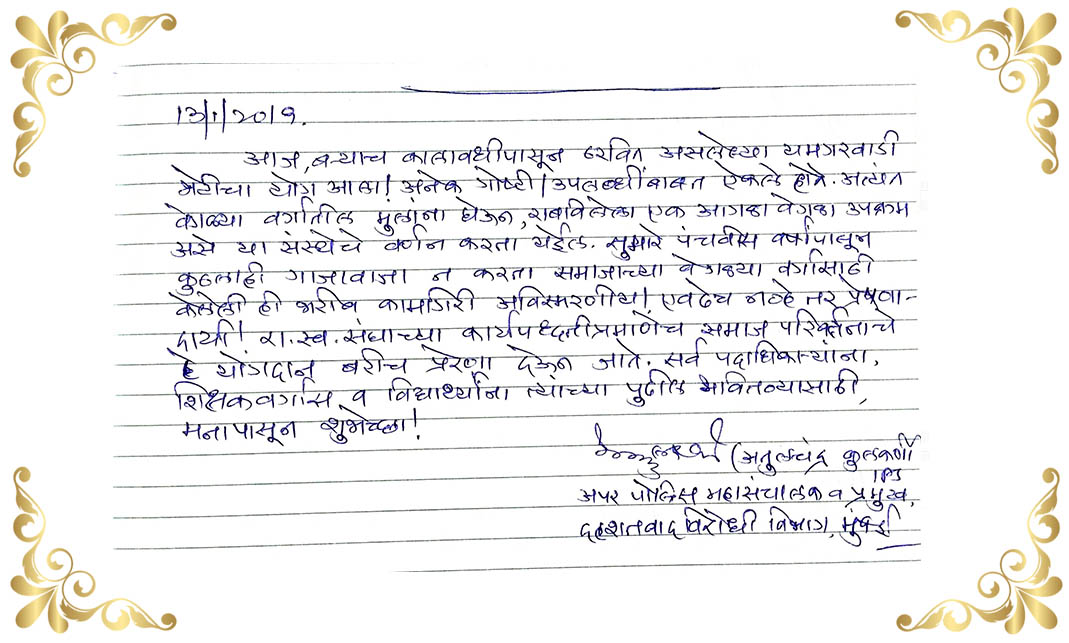 १३/१/२०१९.
आज, बऱ्याच कालावधीपासून ठरवित असलेल्या यमगरवाडी
भेटीचा योग आला! अनेक गोष्टी/उपलब्धींबाबत ऐकले होते. अत्यंत
वेगळ्या वर्गातील मुलांना घेऊन, राबविलेला एक आगळा वेगळा उपक्रम
असे या संस्थेचे वर्णन करता येईल. सुमारे पंचवीस वर्षांपासून
कुठलाही गाजावाजा न करता समाजाच्या वेगळ्या वर्गासाठी
केलेली ही भरीव कामगिरी अविस्मरणीय! एवढेच नव्हे तर प्रेरणा-
दायी! रा. स्व. संघाच्या कार्यपध्दतीप्रमाणेच समाज परिवर्तनाचे
हे योगदान बरीच प्रेरणा देऊन जाते. सर्व पदाधिकाऱ्यांना,
शिक्षकवर्गास व विद्यार्थ्यांना त्यांच्या पुढील भवितव्यासाठी,
मनापासून शुभेच्छा!
(अतुलचंद्र कुलकर्णी
IPS
अपर पोलिस महासंचालक व प्रमुख,
दहशतवाद विरोधी विभाग, मुंबई